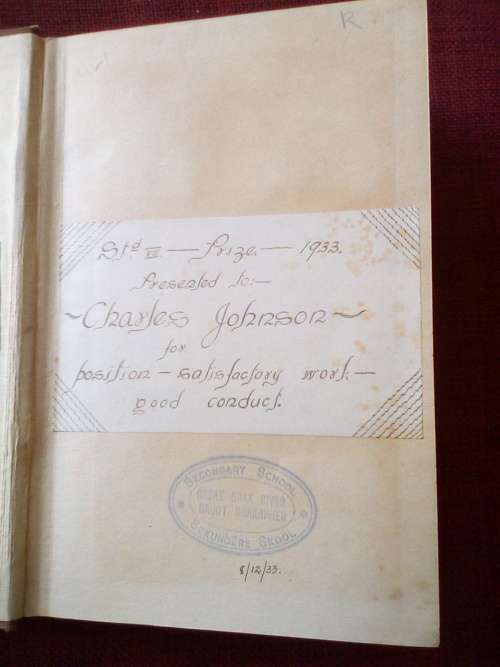 R.
Std VI — Prize — 1933.
Presented to:—
~ Charles Johnson ~
for
position — satisfactory work —
good conduct.
SECONDARY SCHOOL
GREAT BRAK RIVER
GROOT BRAKRIVIER
SEKUNDÊRE SKOOL
8/12/33.